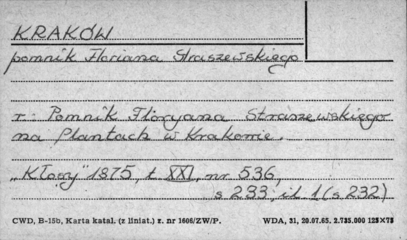 KRAKÓW
pomnik Floriana Straszewskiego
r: Pomnik Floryana Straszewskiego
na Plantach w Krakowie.
„Kłosy" 1875, t. XXI, nr 536,
s 233, il. 1 (s 232)
CWD, B-15b, Karta katal. (z liniat.) z. nr 1606/ZW/P. WDA, 31, 20.07.65. 2.735.000 125×75